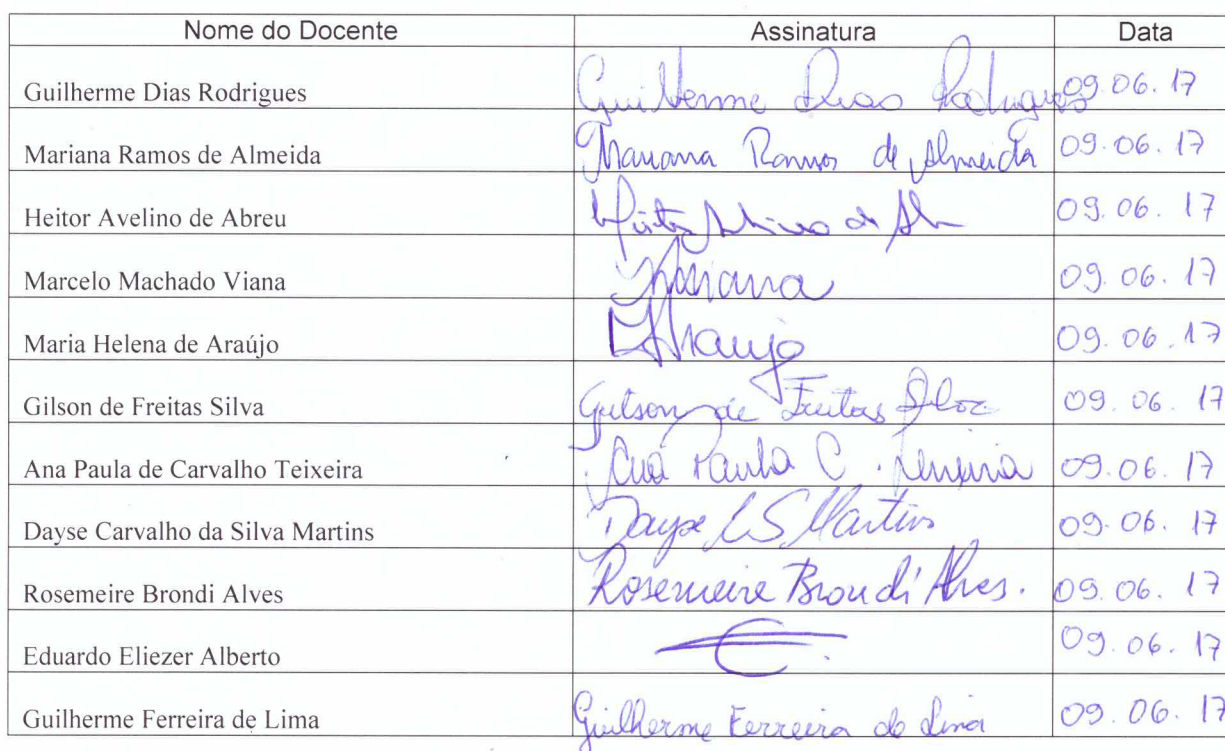 Nome do Docente Assinatura Data
Guilherme Dias Rodrigues Guilherme Dias Rodrigues 09.06.17
Mariana Ramos de Almeida Mariana Ramos de Almeida 09.06.17
Heitor Avelino de Abreu Heitor Avelino de 09.06.17
Marcelo Machado Viana 09.06.17
Maria Helena de Araújo Araujo 09.06.17
Gilson de Freitas Silva Gilson de Freitas Silva 09.06.17
Ana Paula de Carvalho Teixeira Ana Paula C. Teixeira 09.06.17
Dayse Carvalho da Silva Martins Dayse C S Martins 09.06.17
Rosemeire Brondi Alves Rosemeire Brondi Alves. 09.06.17
Eduardo Eliezer Alberto 09.06.17
Guilherme Ferreira de Lima Guilherme Ferreira de Lima 09.06.17